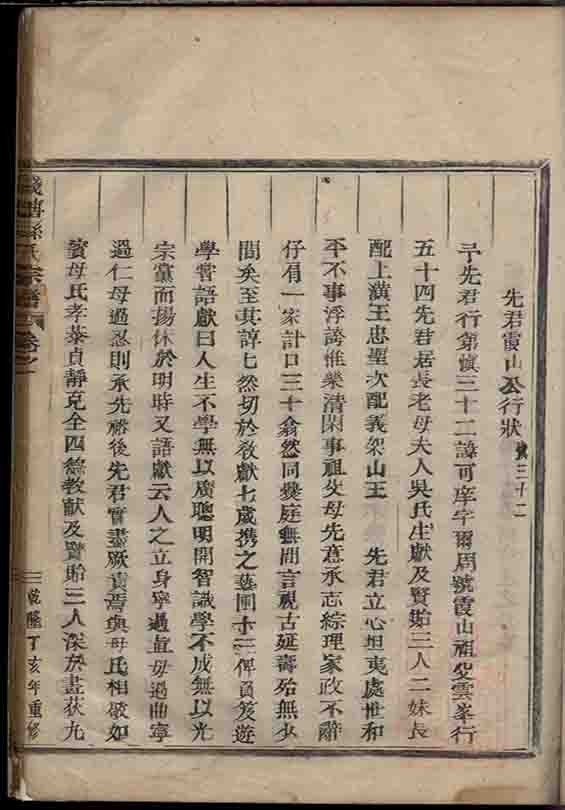 先君霞山公行狀 慎三十二
予先君行第慎三十二諱可庠字爾周號霞山祖父雲峯行
五十四先君居長老母大人吳氏生獻及賢貽三人二妹長
配上潢王忠聖次配義架山王 先君立心坦夷處世和
平不事浮誇惟樂清閑事祖父母先意承志綜理家政不辭
仔肩一家計口三十翕然同爨庭無間言視古延壽殆無少
間矣至其諄乚然切於教獻七歲携之藝圃十三俾負笈遊
學嘗語獻曰人生不學無以廣聰明開智識學不成無以光
宗黨而揚休於明時又語獻云人之立身寧過直毋過曲寧
過仁毋過忍則承先裕後先君實盡厥責焉與母氏相敬如
賓母氏孝恭貞靜克全四德教獻及賢貽三人深於畫荻九
孫氏宗譜 卷之一
乾隆丁亥年重修